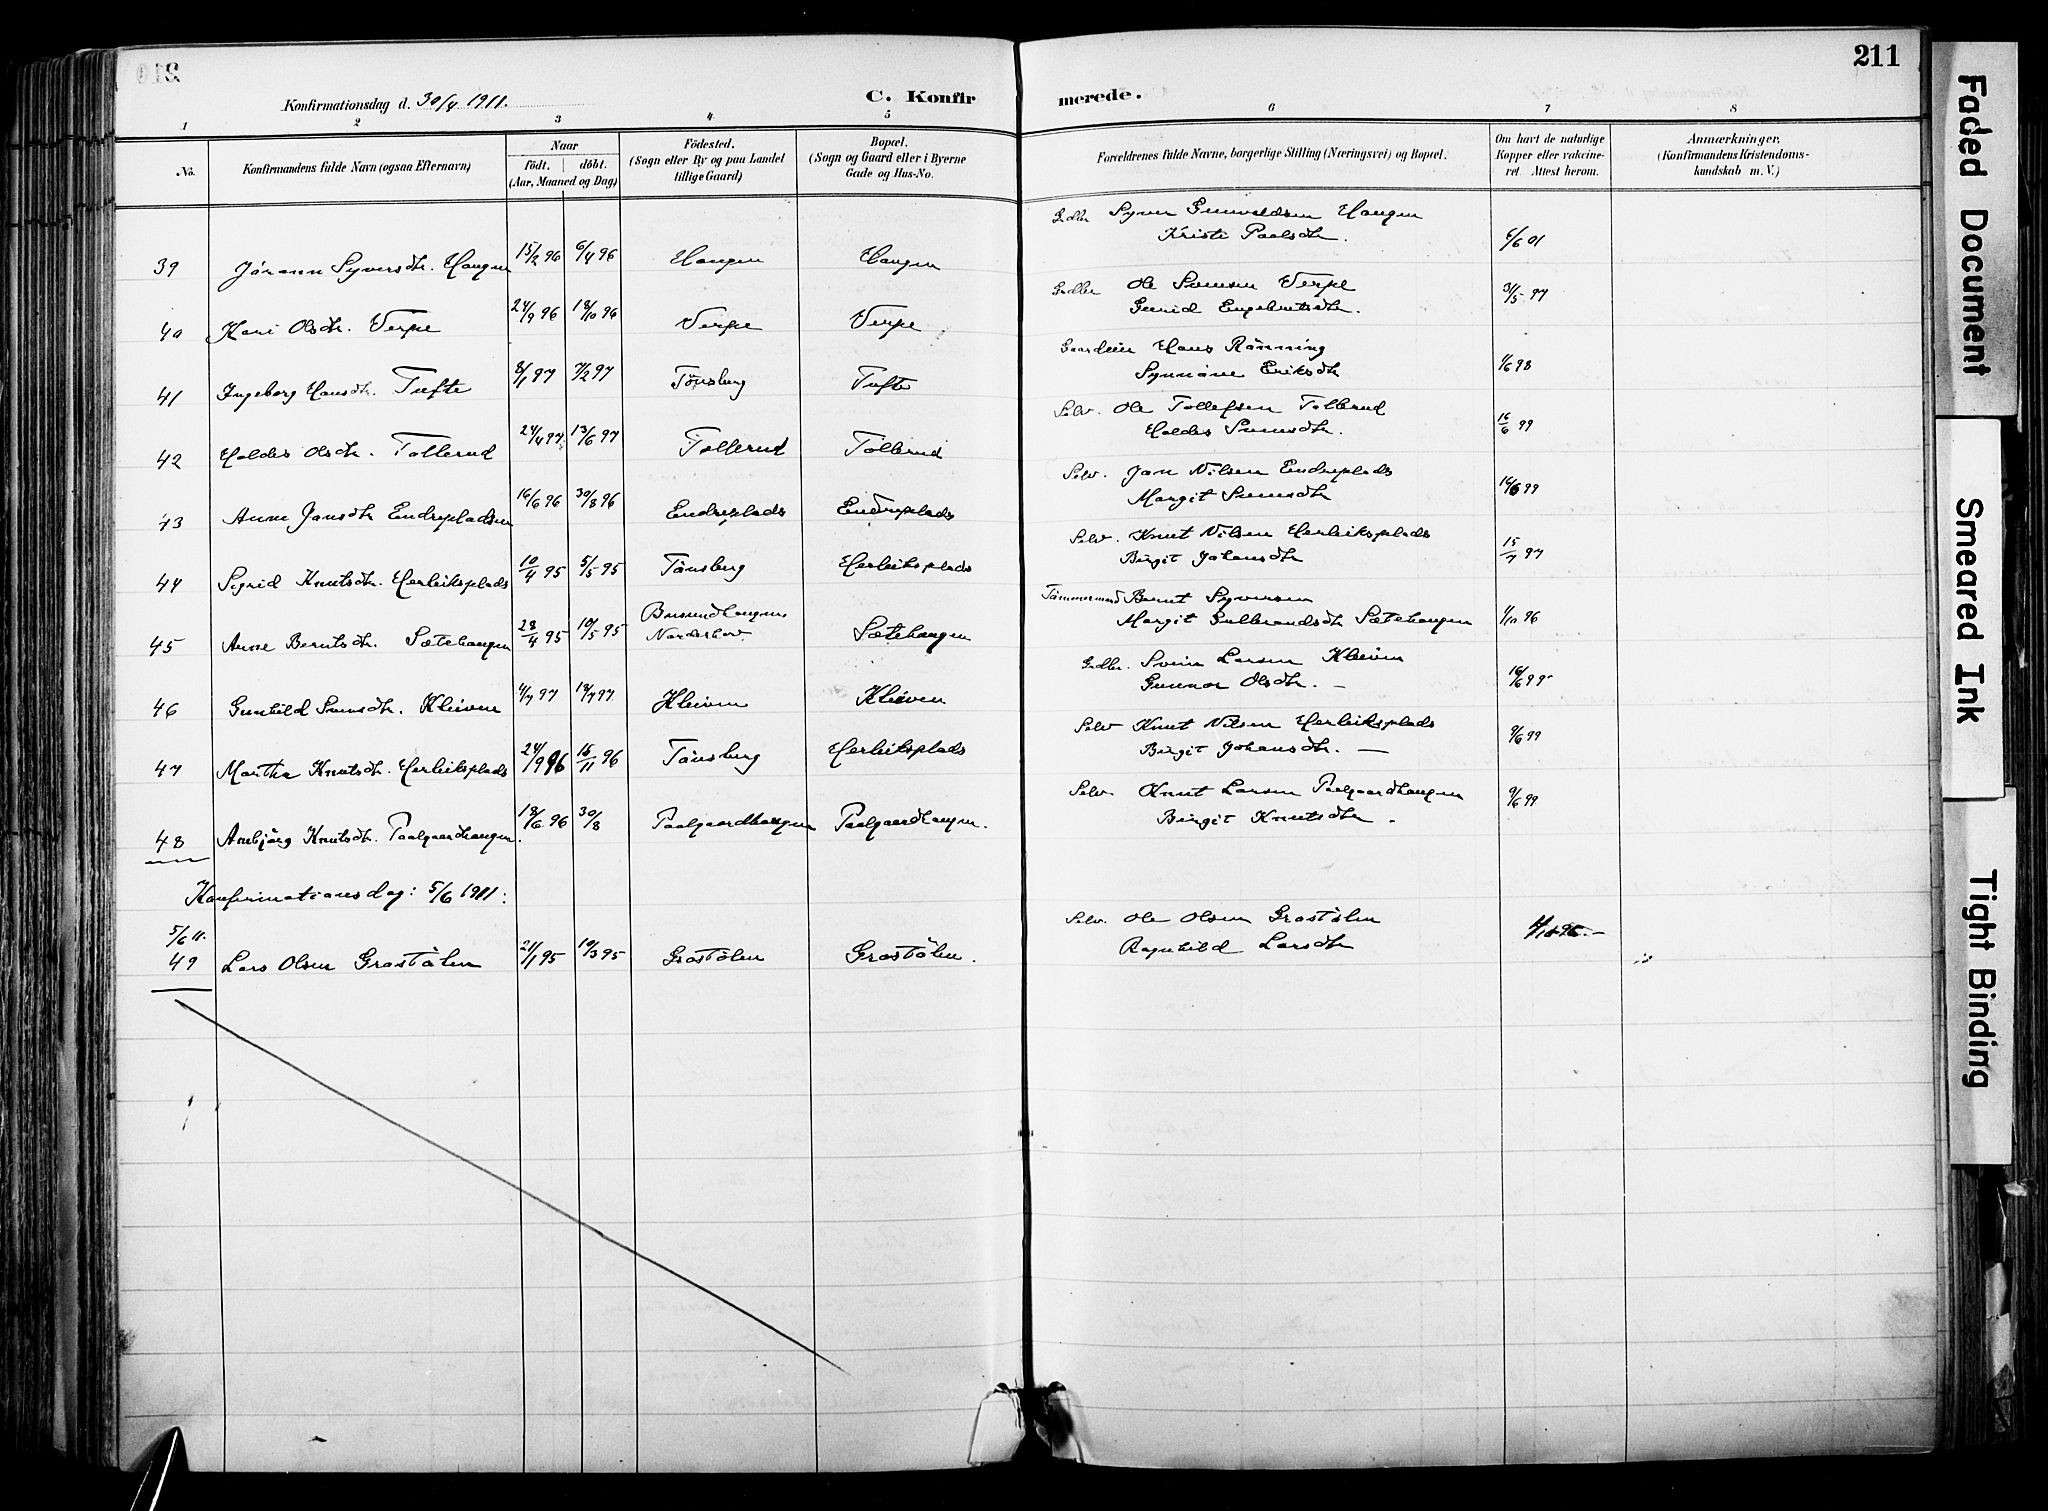 211
Konfirmationsdag d. 30/4 1911.
C. Konfirmerede.
1 2 3 4 5 6 7 8
No.
Konfirmandens fulde Navn (ogsaa Efternavn)
Naar
födt. döbt.
(Aar, Maaned og Dag)
Födested.
(Sogn eller By og paa Landet
tillige Gaard)
Bopæl.
(Sogn og Gaard eller i Byerne
Gade og Hus-No.
Forældrenes fulde Navne, borgerlige Stilling (Næringsvei) og Bopæl.
Om havt de naturlige
Kopper eller vakcine-
ret. Attest herom.
Anmærkninger.
(Konfirmandens Kristendoms-
kundskab m. V.)
Gdbr Syver Gunvaldsen Haugen
Kristi Paalsdtr.
39 Jörann Syversdtr. Haugen 15/2 96 6/4 96 Haugen Haugen 6/6 01
Gdbr Ole Svensen Verpe
Gunid Engebretsdtr.
40 Kari Olsdtr. Verpe 24/9 96 18/10 96 Verpe Verpe 3/5 97
Hans Rönning
Synnöve Eriksdtr
41 Ingeborg Hansdtr. Tufte 8/1 97 7/2 97 Tönsberg Tufte 1/6 98
Selv. Ole Tollefsen Tollerud
Holdis Svensdtr.
42 Holdis Olsdtr. Tollerud 24/4 97 13/6 97 Tollerud Tollerud 16/6 99
Selv. Jon Nilsen Endreplads
Margit Svensdtr
43 Anne Jonsdtr Endrepladsen 16/6 96 30/8 96 Endreplads Endreplads 16/6 99
Selv. Knut Nilsen Herleiksplads
Birgit Johansdtr
44 Sigrid Knutsdtr. Herleiksplads 10/4 95 5/5 95 Tönsberg Herleiksplads 15/7 97
Tömmermand Bernt Syversen
Margit Gulbrandsdtr Sætehaugen
45 Anne Berntsdtr. Sætehaugen 28/4 95 19/5 95 Busundhaugen Norderhov Sætehaugen 1/10 96
Gdbr. Svein Larsen Kleiven
Gunnor Olsdtr. —
46 Gunhild Svensdtr. Kleiven 4/7 97 18/7 97 Kleiven Kleiven 16/6 99
Selv Knut Nilsen Herleiksplads
Birgit Johansdtr. —
47 Martha Knutsdtr. Herleiksplads 24/9 96 15/11 96 Tönsberg Herleiksplads 9/6 99
Selv. Knut Larsen Paalgaardhaugen
Birgit Knutsdtr.
48 Anbjörg Knutsdtr. Paalgaardhaugen. 18/6 96 30/8 Paalgaardhaugen Paalgaardhaugen. 9/6 99
Konfirmationsdag: 5/6 1911:
Selv. Ole Olsen Grostölen
Ragnhild Larsdtr
5/6 11.
49 Lars Olsen Grostölen 21/1 95 10/3 95 Grostölen Grostölen.
Faded Document
Smeared Ink
Tight Binding